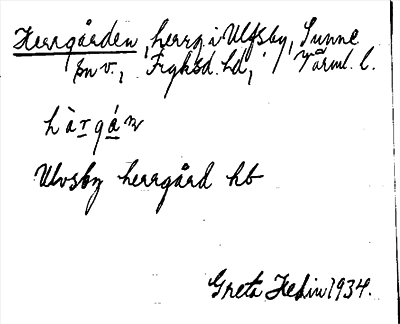 Herrgården, herrg. i Ulfsby, Sunne
sn v., Fryksd. hd, Värml. l.
hàrgán
Ulvsby herrgård hb
Greta Hedin 1934.